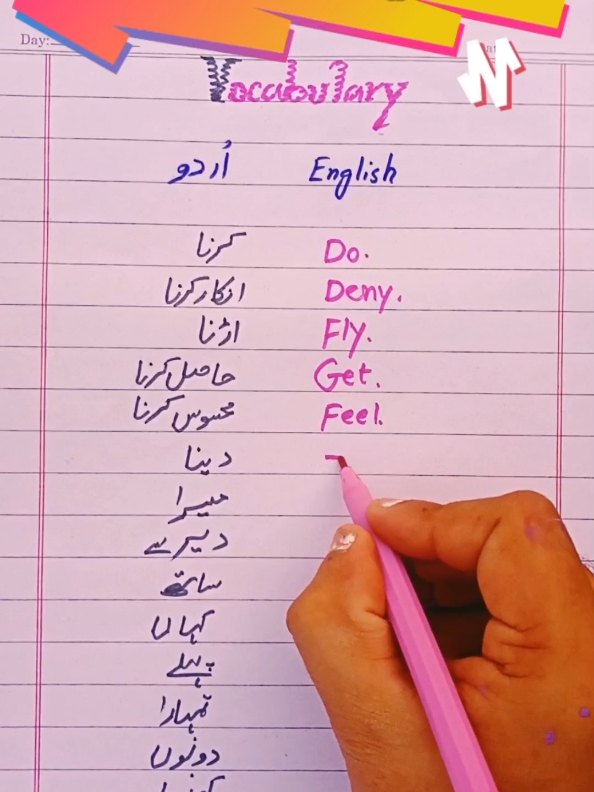 Day:
Vocabulary
اُردو English
کرنا Do.
انکار کرنا Deny.
اڑنا Fly.
حاصل کرنا Get.
محسوس کرنا Feel.
دینا
میرا
دیر سے
ساتھ
کہاں
پہلے
تمہارا
دونوں